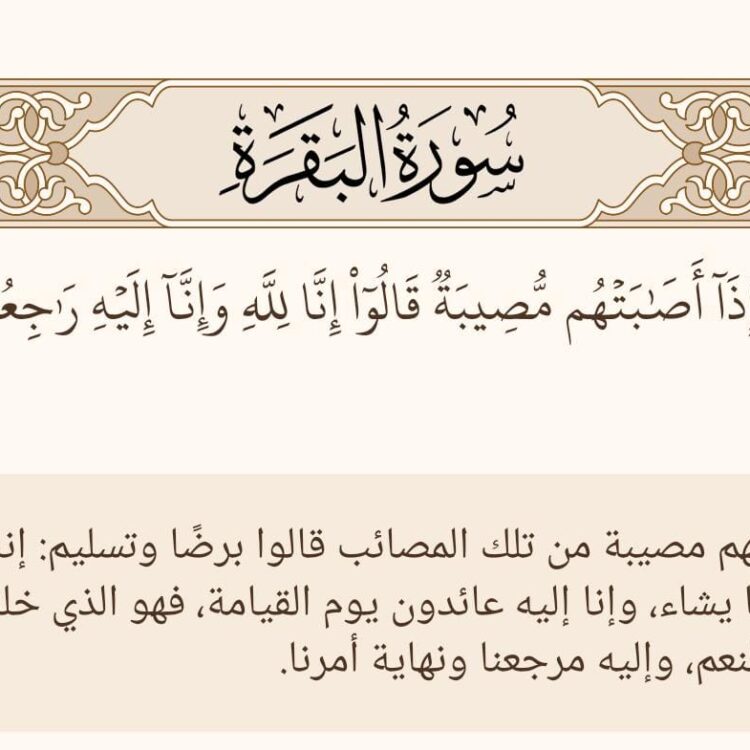 سُورَةُ البَقَرَةِ
إِذَآ أَصَٰبَتۡهُم مُّصِيبَةٞ قَالُوٓاْ إِنَّا لِلَّهِ وَإِنَّآ إِلَيۡهِ رَٰجِعُ
هم مصيبة من تلك المصائب قالوا برضًا وتسليم: إنا
يشاء، وإنا إليه عائدون يوم القيامة، فهو الذي خل
نعم، وإليه مرجعنا ونهاية أمرنا.